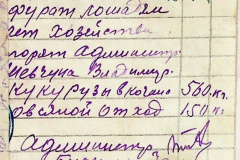 фураж лошадям
чет хозяйства
поряж админстр.
Шевчука Владимир.
Кукурузы в кочане 500 кг.
овсяной отход 150 кг
Администр.